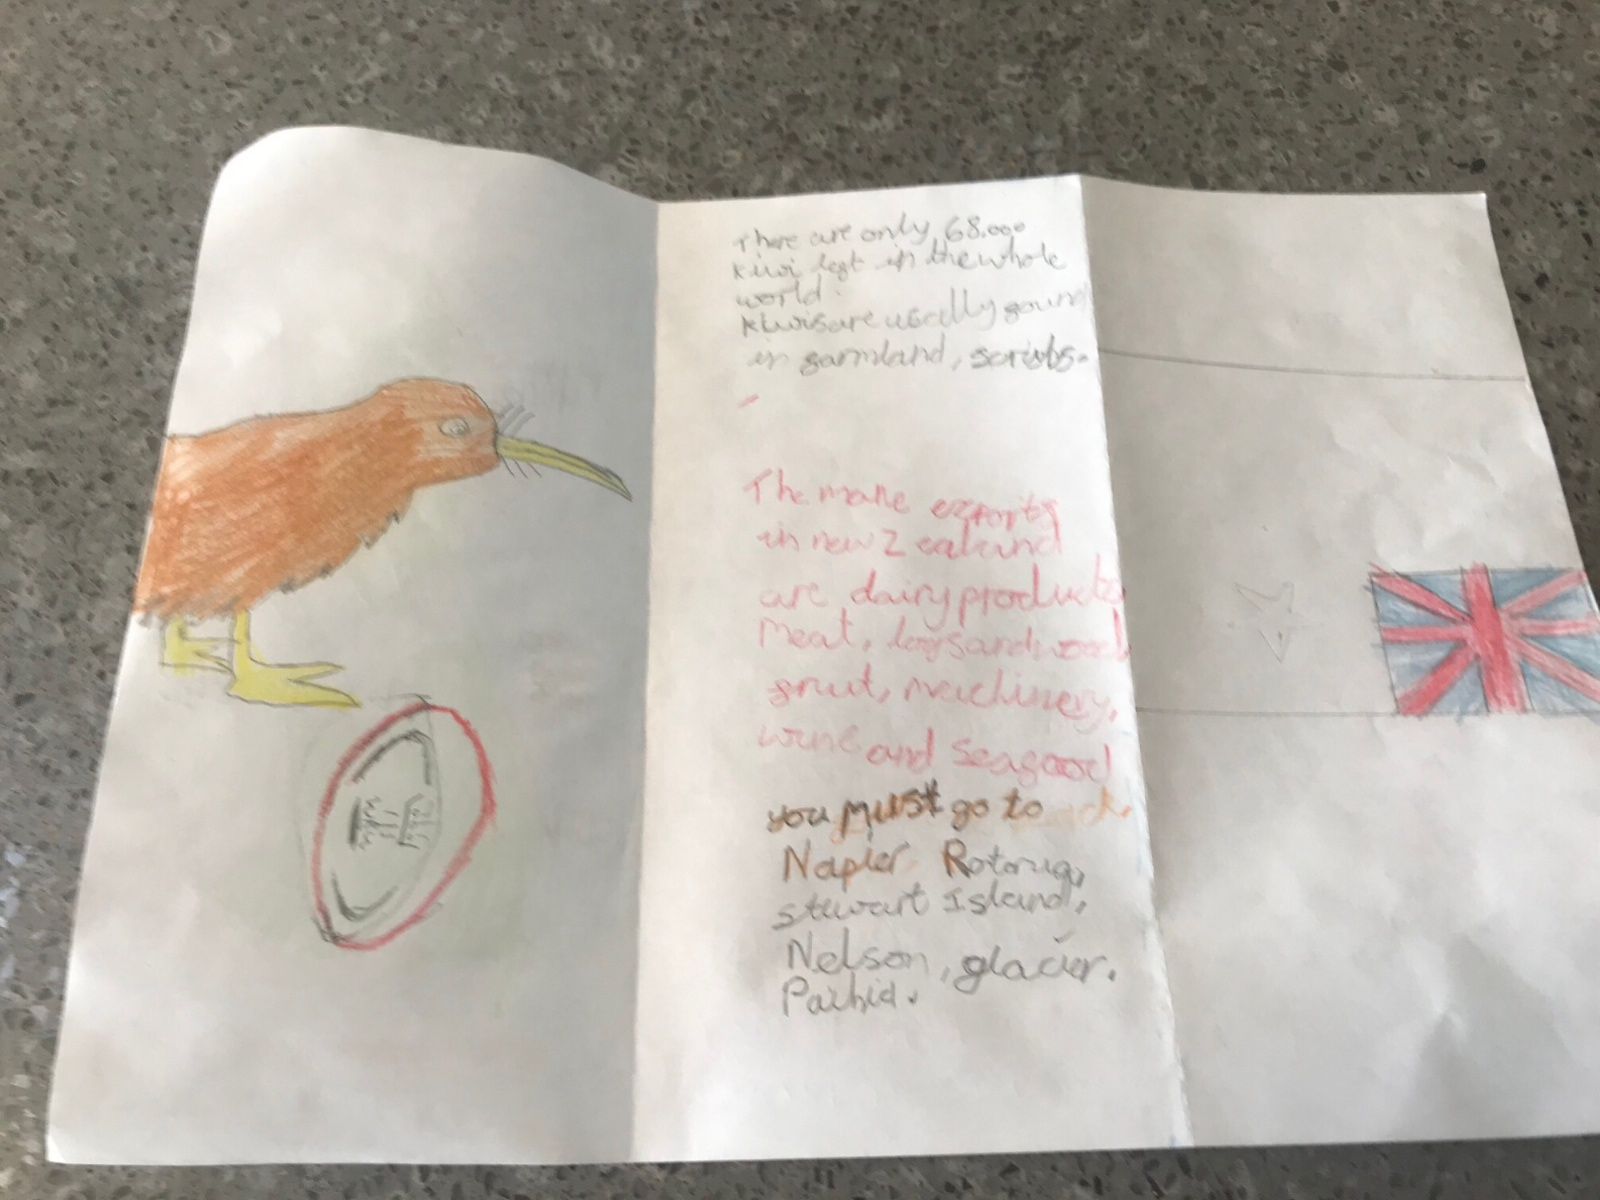 There are only 68.000
kiwi left in the whole
world.
kiwis are usally found
in farmland, scrubs.
The mane exports
in new Zealand
are dairy products
Meat, logs and wood
fruit, machinery,
wine and seafood
you must go to
Napier Rotorua,
stewart Island,
Nelson, glacier.
Paihia.